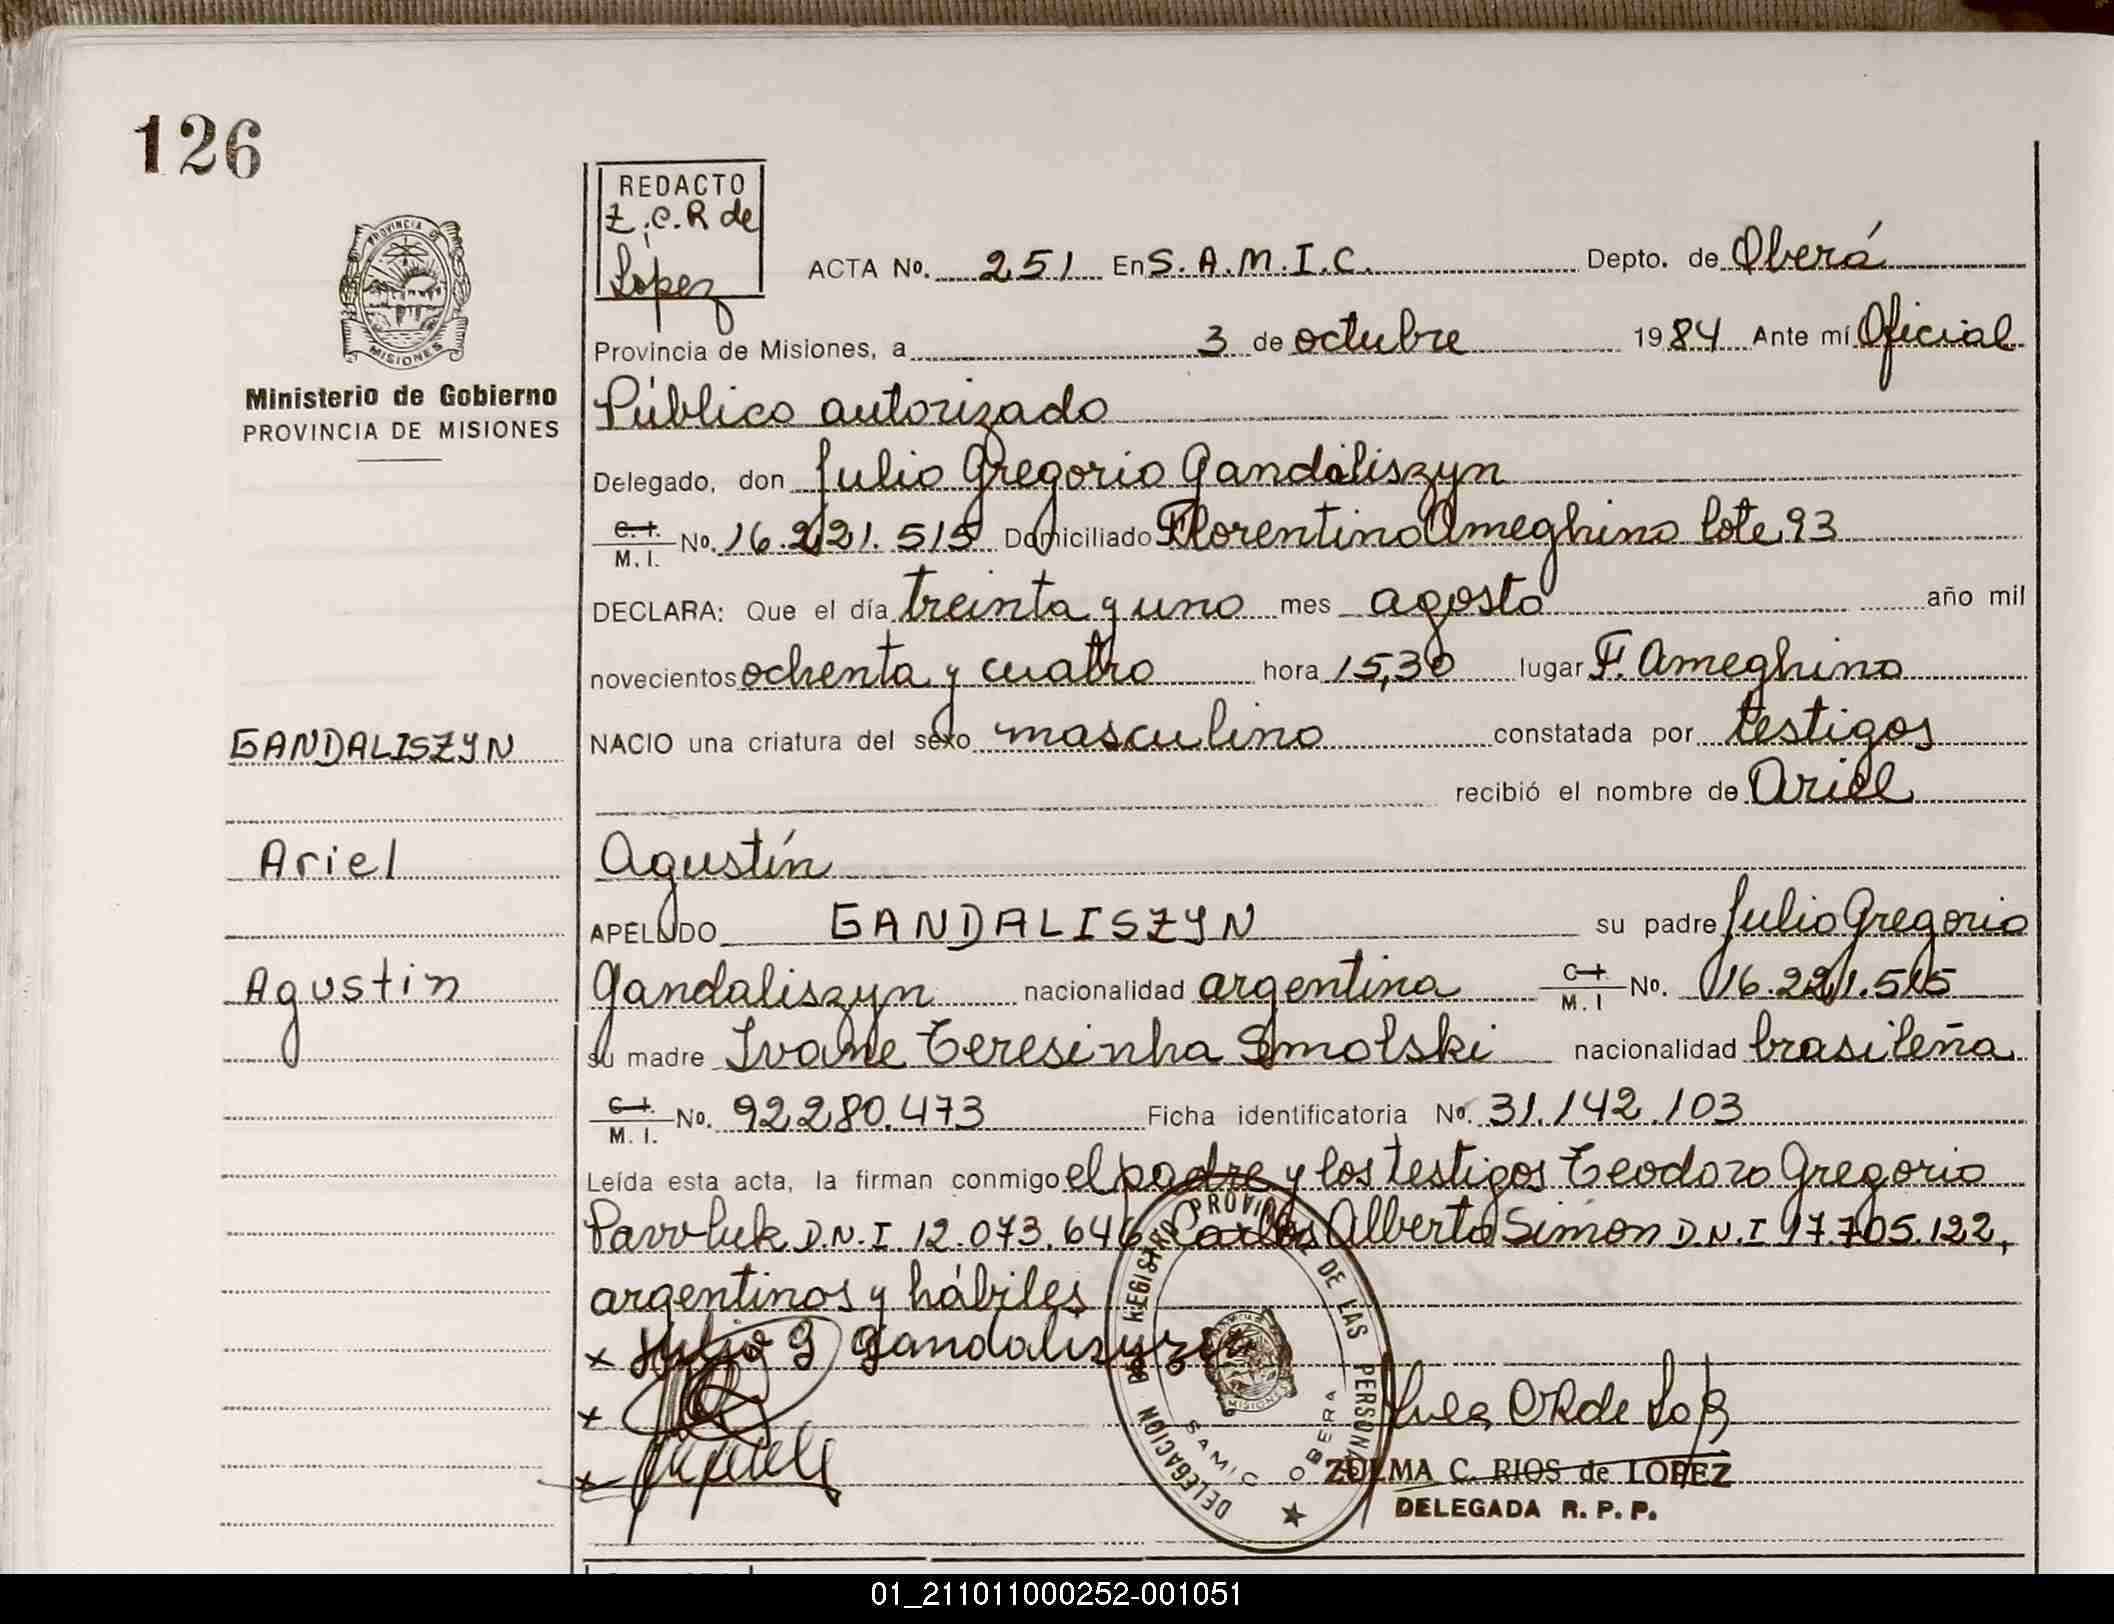 126
REDACTO
Z.C.R de
Lopez
ACTA No. 251 En S.A.M.I.C. Depto. de Oberá
Provincia de Misiones, a 3 de octubre 1984 Ante mí Oficial
PROVINCIA DE
MISIONES
Ministerio de Gobierno
PROVINCIA DE MISIONES
Público autorizado
Delegado, don Julio Gregorio Gandaliszyn
C.I. M.I. No. 16.221.515 Domiciliado Florentino Ameghino lote 93
DECLARA: Que el día treinta y uno mes agosto año mil
novecientos ochenta y cuatro hora 15,30 lugar F. Ameghino
GANDALISZYN
NACIO una criatura del sexo masculino constatada por testigos
recibió el nombre de Ariel
Ariel
Agustín
APELLIDO GANDALISZYN su padre Julio Gregorio
Agustin
Gandaliszyn nacionalidad argentina C.I. M.I No. 16.221.515
su madre Ivane Teresinha Smolski nacionalidad brasileña
C.I. M.I. No. 92.280.473 Ficha identificatoria No. 31.142.103
Leída esta acta, la firman conmigo el padre y los testigos Teodoro Gregorio
Pawluk D.N.I 12.073.646 Carlos Alberto Simon D.N.I 17.705.122,
argentinos y hábiles
x Julio G gandaliszyn
x
x
DELEGACION DE REGISTRO PROVINCIAL DE LAS PERSONAS
MISIONES
SAMIC OBERA
ZULMA C. RIOS de LOPEZ
DELEGADA R. P. P.
01_211011000252-001051